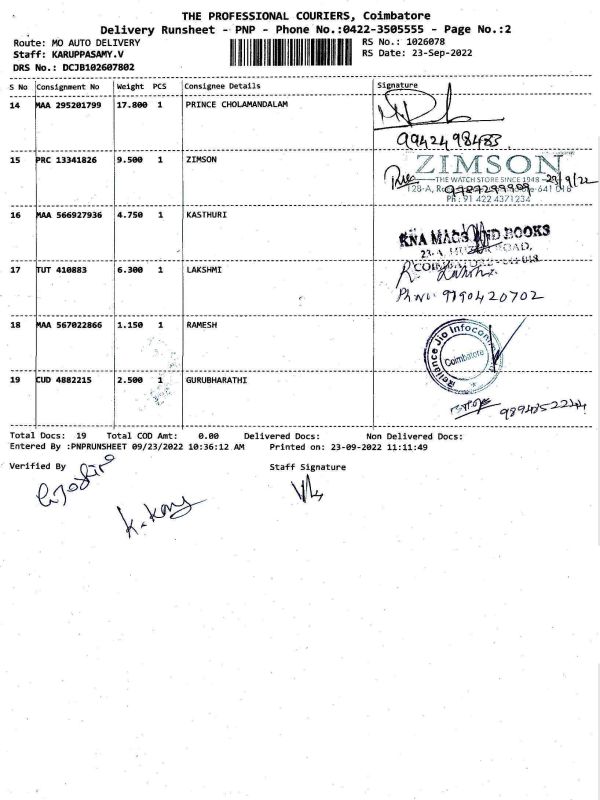 THE PROFESSIONAL COURIERS, Coimbatore
Delivery Runsheet - PNP - Phone No.:0422-3505555 - Page No.:2
Route: MO AUTO DELIVERY RS No.: 1026078
Staff: KARUPPASAMY.V RS Date: 23-Sep-2022
DRS No.: DCJB102607802
S No Consignment No Weight PCS Consignee Details Signature
14 MAA 295201799 17.800 1 PRINCE CHOLAMANDALAM
9942498483
15 PRC 13341826 9.500 1 ZIMSON
ZIMSON
THE WATCH STORE SINCE 1948
23/9/22
Ph: 91 422 4371234
16 MAA 566927936 4.750 1 KASTHURI
RNA MAGS AND BOOKS
ROAD,
17 TUT 410883 6.300 1 LAKSHMI
Ph no: 9790420702
18 MAA 567022866 1.150 1 RAMESH
Reliance Jio Infocomm
Coimbatore
19 CUD 4882215 2.500 1 GURUBHARATHI
Total Docs: 19 Total COD Amt: 0.00 Delivered Docs: Non Delivered Docs:
Entered By :PNPRUNSHEET 09/23/2022 10:36:12 AM Printed on: 23-09-2022 11:11:49
Verified By Staff Signature